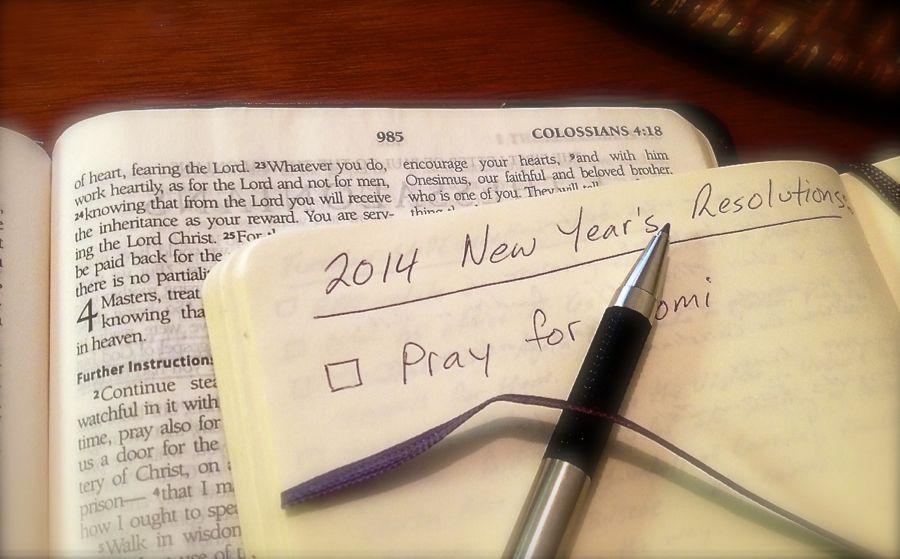 985
COLOSSIANS 4:18
of heart, fearing the Lord. 23Whatever you do,
work heartily, as for the Lord and not for men,
24knowing that from the Lord you will receive
the inheritance as your reward. You are serv-
ing the Lord Christ. 25For
be paid back for the
there is no
4 Masters, treat
knowing
in heaven.
Further
2Continue
watchful in it with
time, pray also for
us a door for the
tery of Christ, on
prison— 4that I
how I ought to
5Walk in
encourage your hearts, 9and with him
Onesimus, our faithful and beloved brother,
who is one of you. They will
2014 New Year's Resolutions:
Pray for